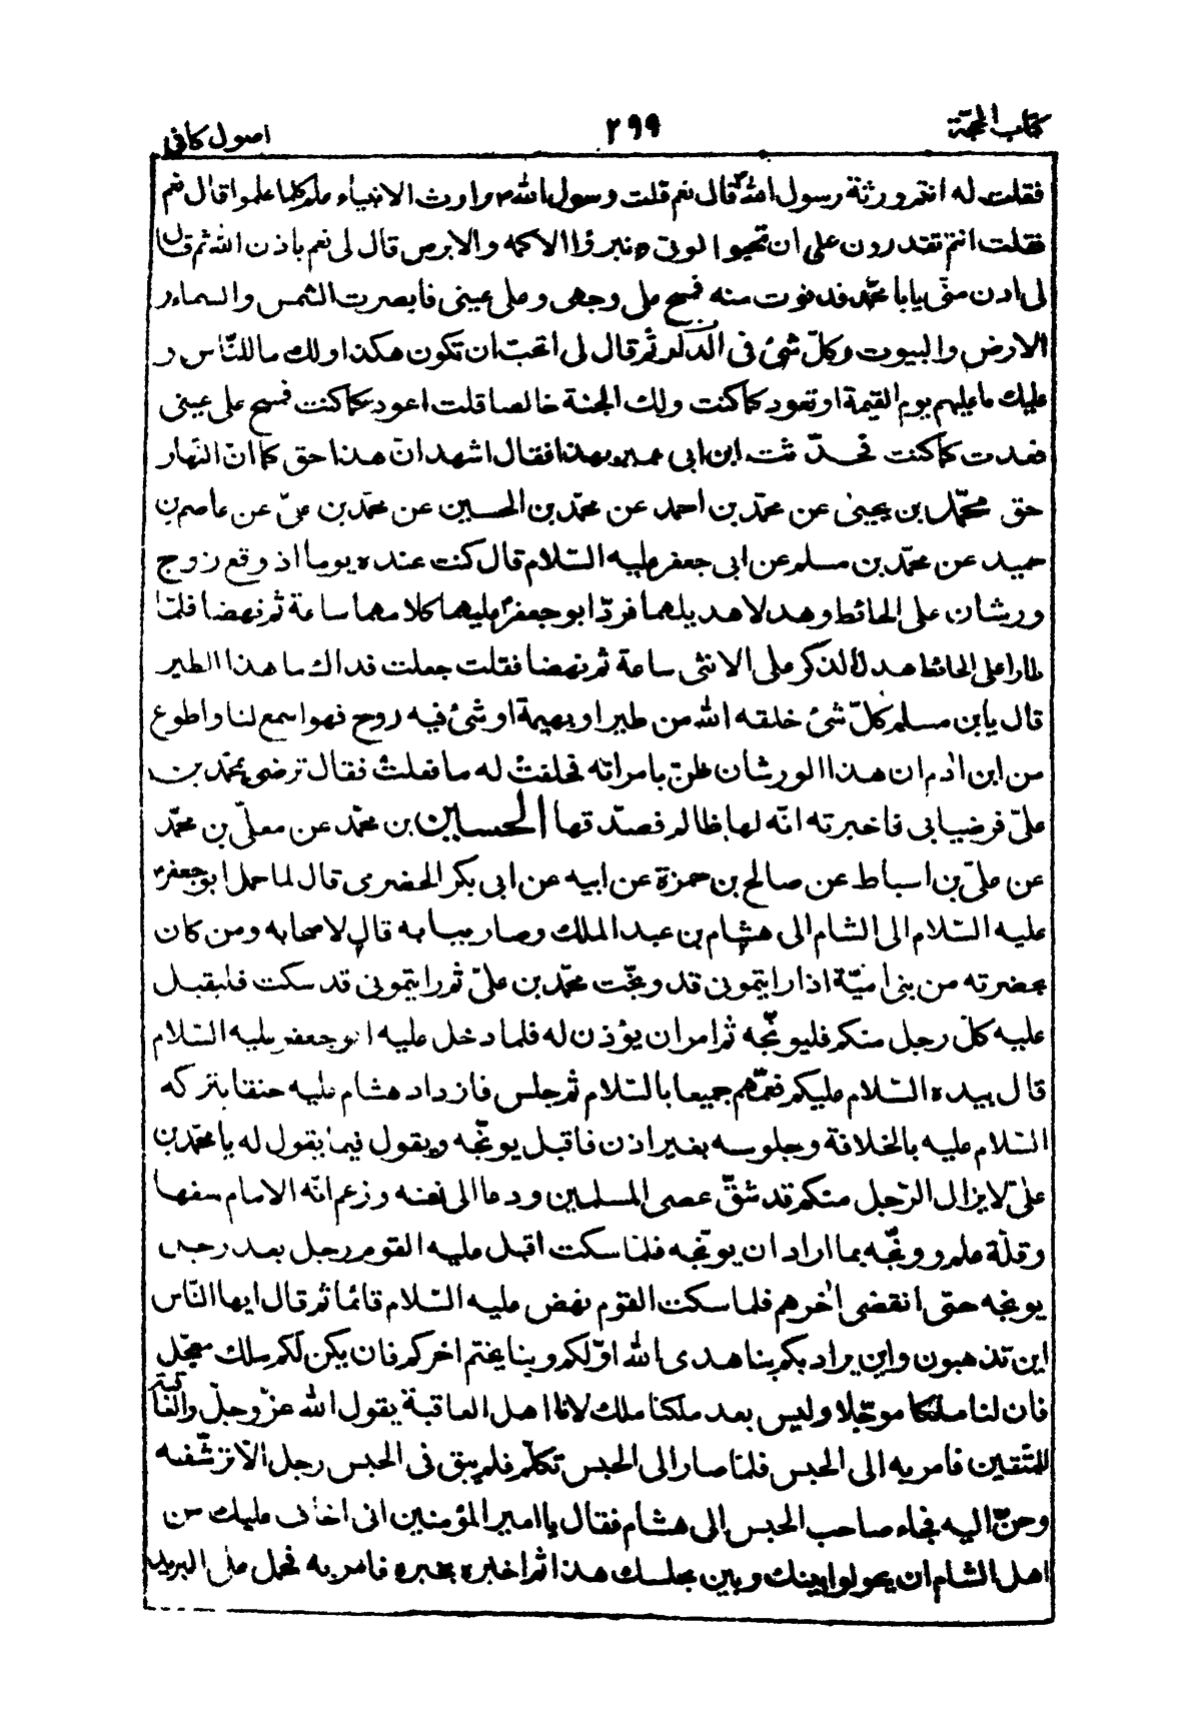 كتاب الحجّة
٢٩٩
اصول كافى
فقلت له انتم ورثة رسول الله ص قال نعم قلت رسول الله ص وارث الانبياء علم كلما علموا قال نعم
فقلت انتم تقدرون على ان تحيوا الموتى و تبرؤا الاكمه والابرص قال لى نعم باذن الله ثم قال
لى ادن منّى يابا محمّد فدنوت منه فمسح على وجهى وعلى عينى فابصرت الشمس والسماء و
الارض والبيوت وكلّ شئ فى الدار ثم قال لى اتحبّ ان تكون هكذا ولك ما للنّاس و
عليك ما عليهم يوم القيمة او تعود كما كنت ولك الجنة خالصا قلت اعود كما كنت فمسح على عينى
فعدت كما كنت فحدّثت ابن ابى عمير بهذا فقال اشهد انّ هذا حق كما انّ النّهار
حق محمّد بن يحيى عن محمّد بن احمد عن محمّد بن الحسين عن محمّد بن علىّ عن عاصم بن
حميد عن محمّد بن مسلم عن ابى جعفر عليه السّلام قال كنت عنده يوما اذ وقع زوج
ورشان على الحائط وهدلا هديلهما فردّ ابو جعفر ع عليهما كلامهما ساعة ثم نهضا فلمّا
طارا على الحائط هدل الذكر على الانثى ساعة ثم نهضا فقلت جعلت فداك ما هذا الطير
قال يابن مسلم كلّ شئ خلقه الله من طير او بهيمة او شئ فيه روح فهو اسمع لنا واطوع
من ابن ادم ان هذا الورشان ظنّ بامراته فحلفت له ما فعلت فقال ترضى بمحمّد بن
علىّ فرضيا بى فاخبرته انّه لها ظالم فصدّقها الحسين بن محمّد عن معلّى بن محمّد
عن علىّ بن اسباط عن صالح بن حمزة عن ابيه عن ابى بكر الحضرمى قال لما حمل ابو جعفر ع
عليه السّلام الى الشام الى هشام بن عبد الملك وصار ببابه قال لاصحابه ومن كان
بحضرته من بنى اميّة اذا رايتمونى قد وبّخت محمّد بن علىّ ثم رايتمونى قد سكت فليقبل
عليه كلّ رجل منكم فليوبّخه ثم امر ان يؤذن له فلما دخل عليه ابو جعفر عليه السّلام
قال بيده السّلام عليكم فعمّهم جميعا بالسّلام ثم جلس فازداد هشام عليه حنقا بتركه
السّلام عليه بالخلافة وجلوسه بغير اذن فاقبل يوبّخه ويقول فيما يقول له يا محمّد بن
علىّ لا يزال الرّجل منكم قد شقّ عصى المسلمين ودعا الى نفسه وزعم انّه الامام سفها
وقلّة علم ووبّخه بما اراد ان يوبّخه فلمّا سكت اقبل عليه القوم رجل بعد رجل
يوبخه حتى انقضى اخرهم فلما سكت القوم نهض عليه السّلام قائما ثم قال ايها النّاس
اين تذهبون واين يراد بكم بنا هدى الله اوّلكم وبنا يختم اخركم فان يكن لكم ملك معجّل
فان لنا ملكا موجّلا وليس بعد ملكنا ملك لانا اهل العاقبة يقول الله عزّ وجلّ والعاقبة
للمتّقين فامر به الى الحبس فلمّا صار الى الحبس تكلّم فلم يبق فى الحبس رجل الّا ترشّفه
وحنّ اليه فجاء صاحب الحبس الى هشام فقال يا امير المؤمنين انى اخاف عليك من
اهل الشام ان يحولوا بينك وبين مجلسك هذا ثم اخبره بخبره فامر به فحمل على البريد